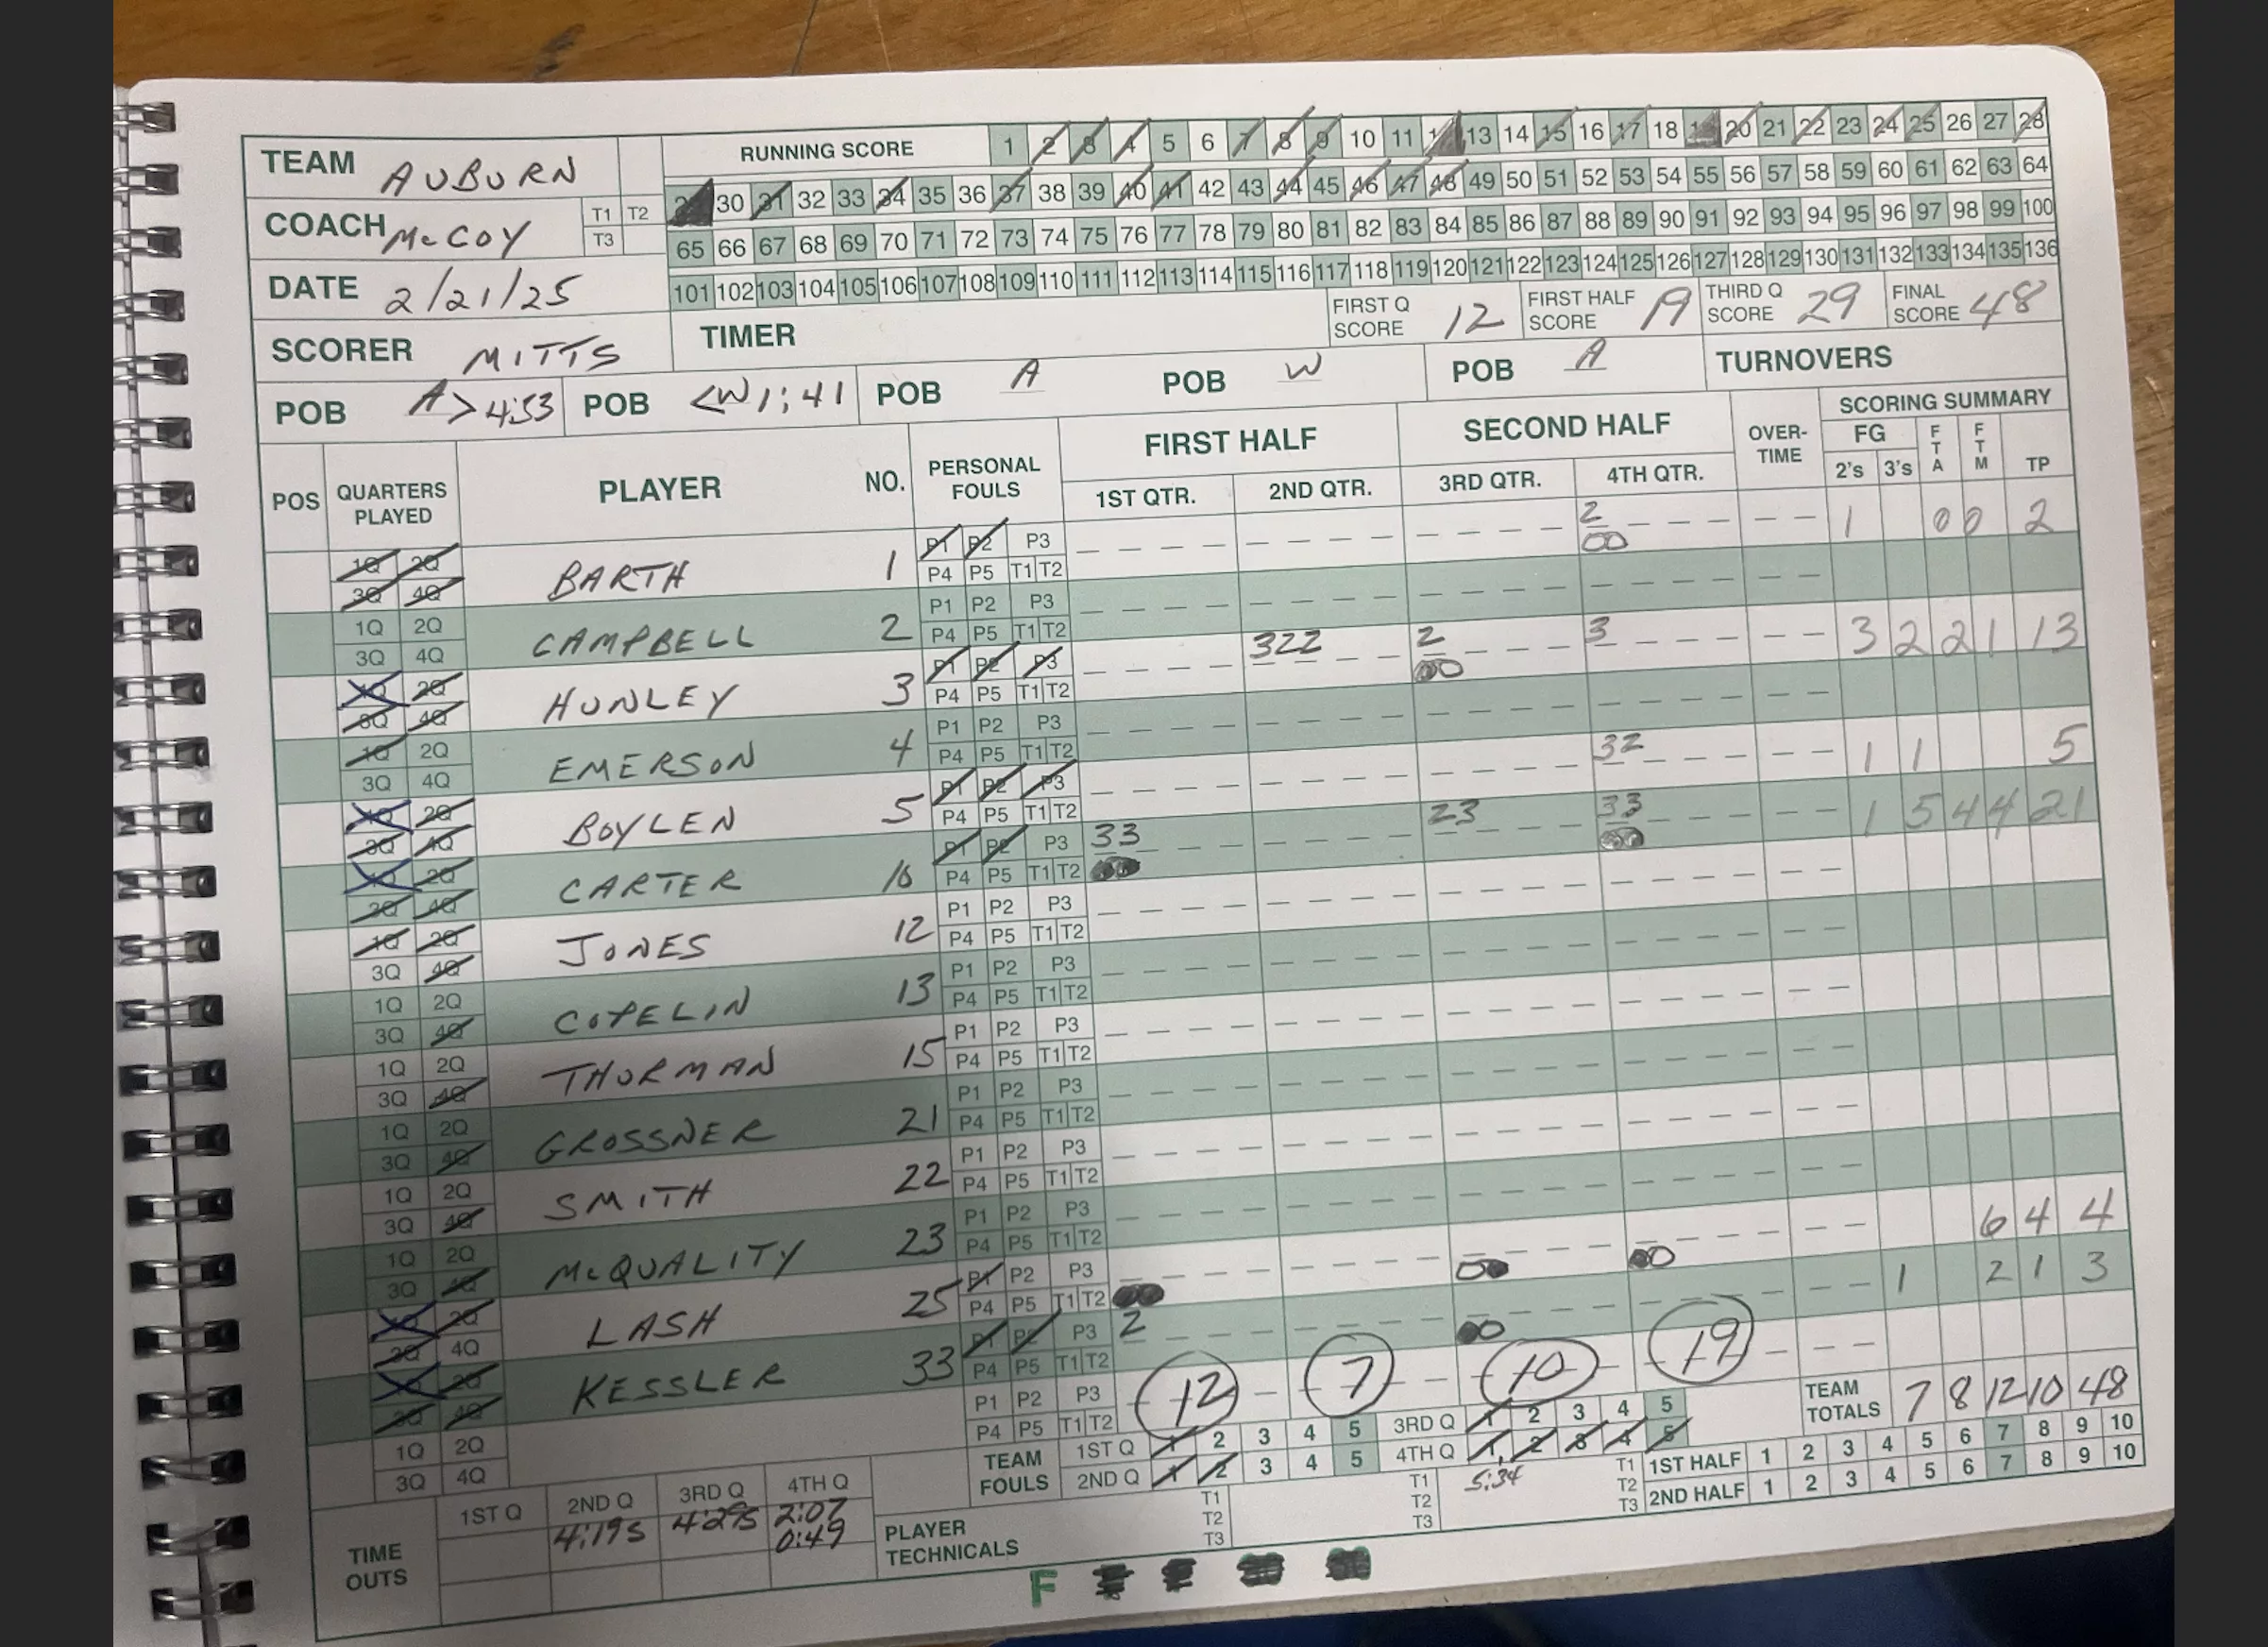 TEAM AUBURN RUNNING SCORE 1 2 3 4 5 6 7 8 9 10 11 13 14 15 16 17 18 20 21 22 23 24 25 26 27 28
30 31 32 33 34 35 36 37 38 39 40 41 42 43 44 45 46 47 48 49 50 51 52 53 54 55 56 57 58 59 60 61 62 63 64
COACH McCOY T1 T2 T3 65 66 67 68 69 70 71 72 73 74 75 76 77 78 79 80 81 82 83 84 85 86 87 88 89 90 91 92 93 94 95 96 97 98 99 100
101 102 103 104 105 106 107 108 109 110 111 112 113 114 115 116 117 118 119 120 121 122 123 124 125 126 127 128 129 130 131 132 133 134 135 136
DATE 2/21/25
SCORER MITTS TIMER FIRST Q SCORE 12 FIRST HALF SCORE 19 THIRD Q SCORE 29 FINAL SCORE 48
POB A> 4:53 POB <W 1:41 POB A POB W POB A TURNOVERS
POS QUARTERS PLAYED PLAYER NO. PERSONAL FOULS FIRST HALF SECOND HALF OVER-TIME SCORING SUMMARY
1ST QTR. 2ND QTR. 3RD QTR. 4TH QTR. FG 2's 3's FTA FTM TP
1Q 2Q 3Q 4Q BARTH 1 P1 P2 P3 P4 P5 T1 T2 2 00 1 0 0 2
1Q 2Q 3Q 4Q CAMPBELL 2 P1 P2 P3 P4 P5 T1 T2
1Q 2Q 3Q 4Q HUNLEY 3 P1 P2 P3 P4 P5 T1 T2 322 2 00 3 3 2 2 1 13
1Q 2Q 3Q 4Q EMERSON 4 P1 P2 P3 P4 P5 T1 T2
1Q 2Q 3Q 4Q BOYLEN 5 P1 P2 P3 P4 P5 T1 T2 32 1 1 5
1Q 2Q 3Q 4Q CARTER 10 P1 P2 P3 P4 P5 T1 T2 33 00 23 33 00 1 5 4 4 21
1Q 2Q 3Q 4Q JONES 12 P1 P2 P3 P4 P5 T1 T2
1Q 2Q 3Q 4Q COPELIN 13 P1 P2 P3 P4 P5 T1 T2
1Q 2Q 3Q 4Q THURMAN 15 P1 P2 P3 P4 P5 T1 T2
1Q 2Q 3Q 4Q GROSSNER 21 P1 P2 P3 P4 P5 T1 T2
1Q 2Q 3Q 4Q SMITH 22 P1 P2 P3 P4 P5 T1 T2
1Q 2Q 3Q 4Q McQUALITY 23 P1 P2 P3 P4 P5 T1 T2
1Q 2Q 3Q 4Q LASH 25 P1 P2 P3 P4 P5 T1 T2 00 00 00 6 4 4
1Q 2Q 3Q 4Q KESSLER 33 P1 P2 P3 P4 P5 T1 T2 2 00 1 2 1 3
1Q 2Q 3Q 4Q P1 P2 P3 P4 P5 T1 T2 12 7 10 19 TEAM TOTALS 7 8 12 10 48
TEAM FOULS 1ST Q 1 2 3 4 5 3RD Q 1 2 3 4 5
2ND Q 1 2 3 4 5 4TH Q 1 2 3 4 5 1ST HALF 1 2 3 4 5 6 7 8 9 10
2ND HALF 1 2 3 4 5 6 7 8 9 10
TIME OUTS 1ST Q 2ND Q 3RD Q 4TH Q
4:19s 4:29s 2:07
0:49
PLAYER TECHNICALS T1 T2 T3 T1 T2 T3 5:34 T1 T2 T3
F